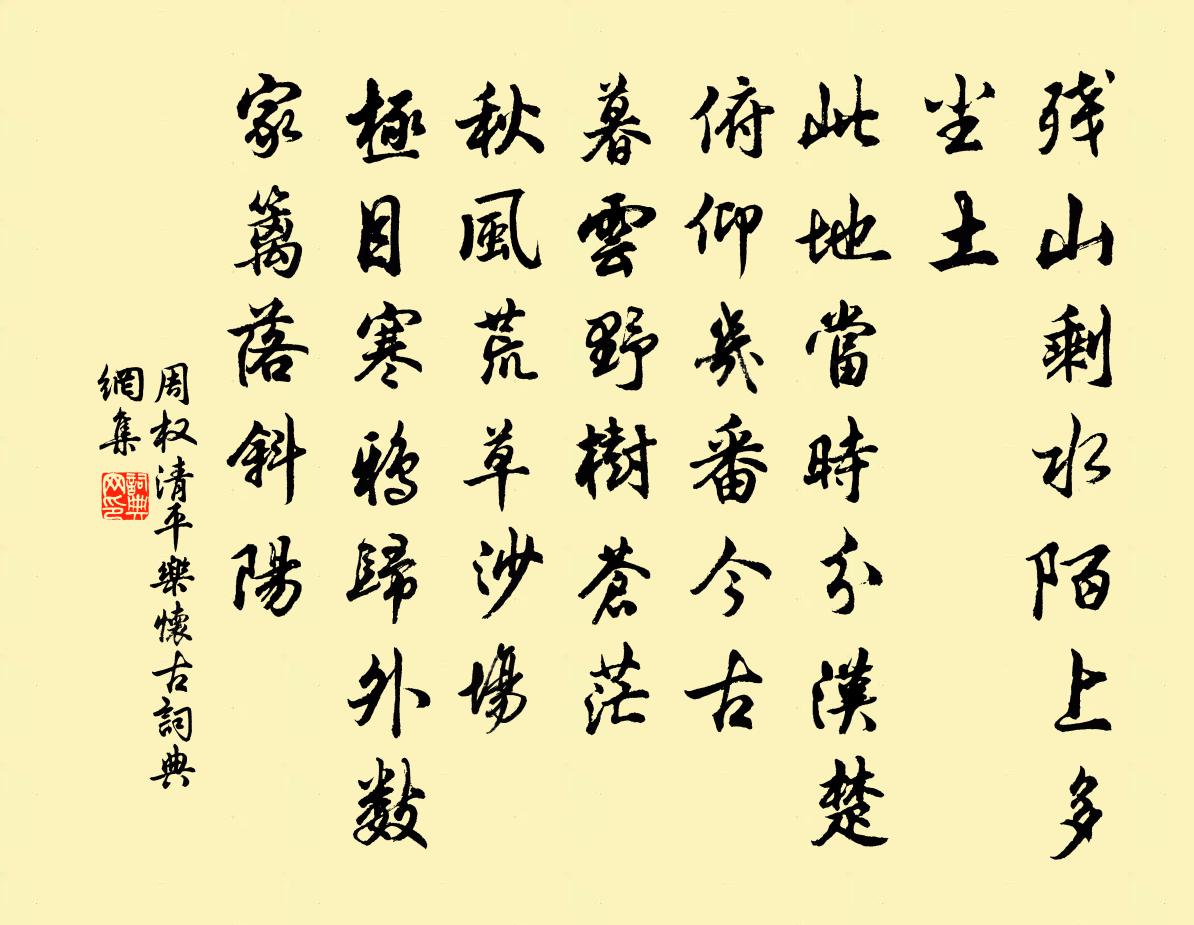 残山剩水陌上多
尘土
此地當時分漢楚
俯仰幾番今古
暮雲野樹蒼茫
秋風荒草沙場
極目寒鴉歸外數
家篱落斜陽
周权清平樂懷古詞典
網集
詞典
网印